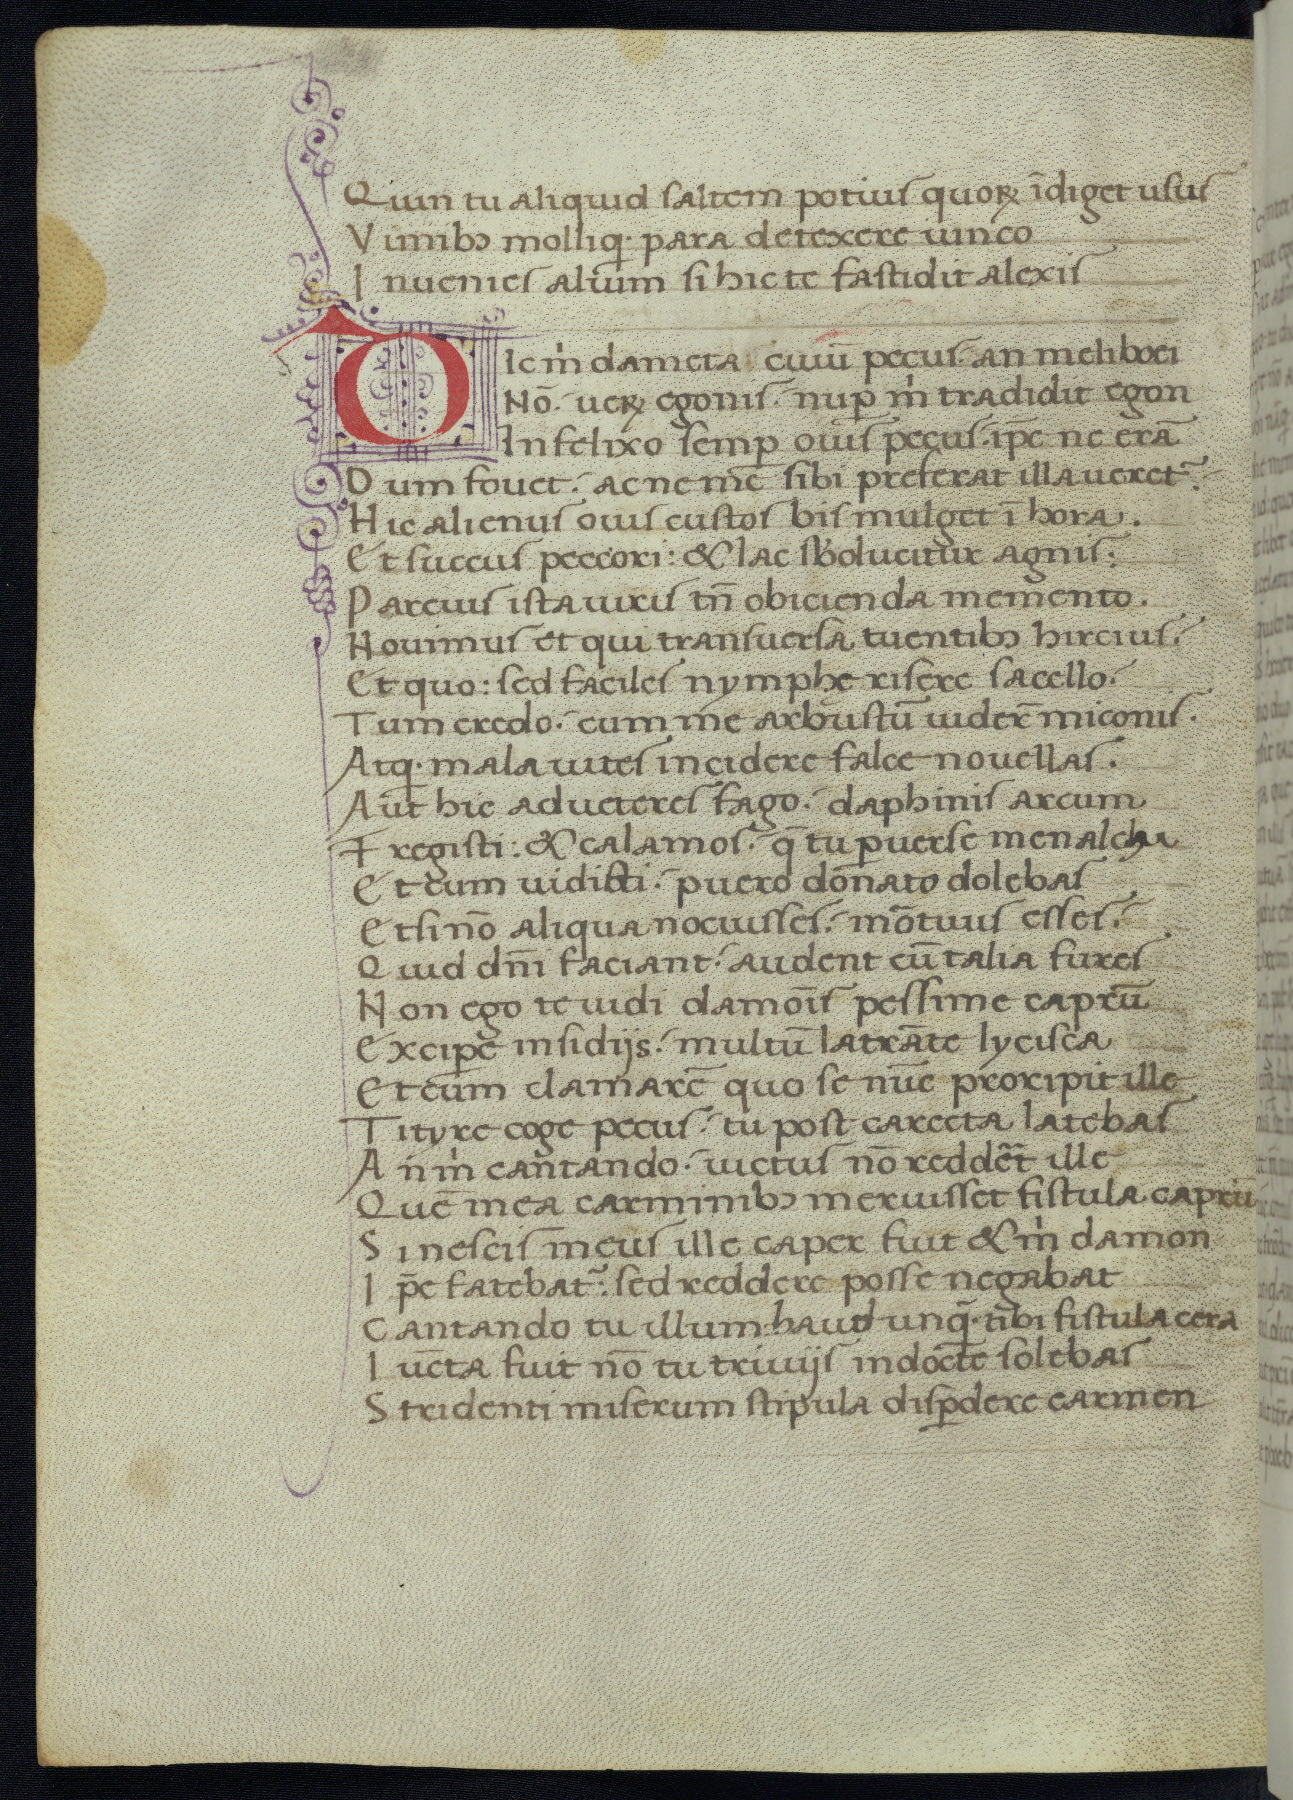 Quin tu aliquid saltem potius quoꝝ īdiget usus
Vimibꝫ molliq; para detexere iunco
Inuenies alium si hic te fastidit alexis
Dic m̍ dameta cuiū pecus. an meliboei
Nō. ueꝝ egonis. nuꝑ m̍ tradidit egon
Infelix o semꝑ ouis pecus. ip̄e neerā
Dum fouet. ac ne mē sibi preferat illa ueret᷑.
Hic alienus ouis custos bis mulget ī hora.
Et succus peccori: & lac sb̄ducitur agnis:
Parcius ista uiris tn̄ obicienda memento.
Nouimus et qui transuersa tuentibꝫ hircius.
Et quo: sed faciles nymphe risere sacello.
Tum credo. cum me arbustū uider̄ miconis.
Atq; mala uites incidere falce nouellas.
Aut hic ad ueteres fago. daphinis arcum
Fregisti: & calamos. q̄ tu ꝑuerse menalcha
Et cum uidisti. puero donato dolebas
Et si nō aliqua nocuisses. mōtuus esses.
Quid dn̄i faciant. audent cū talia fures
Non ego te uidi damoīs pessime caprū
Excipe insidijs. multū latrāte lycisca
Et cum clamarē quo se nūc proripit ille
Tityre coge pecus. tu post carecta latebas
An m̍ cantando. uictus nō redder̄t ille
Quē mea carminibꝫ meruisset fistula caprū
Si nescis meus ille caper fuit & m̍ damon
Ip̄e fatebat᷑. sed reddere posse negabat
Cantando tu illum. haud unq̄. tibi fistula cera
Iūcta fuit nō tu triuijs indocte solebas
Stridenti miserum stipula disꝑdere carmen